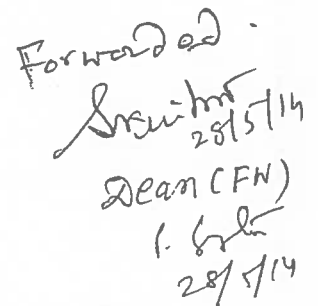 Forwarded.
28/5/14
Dean (FN)
28/5/14